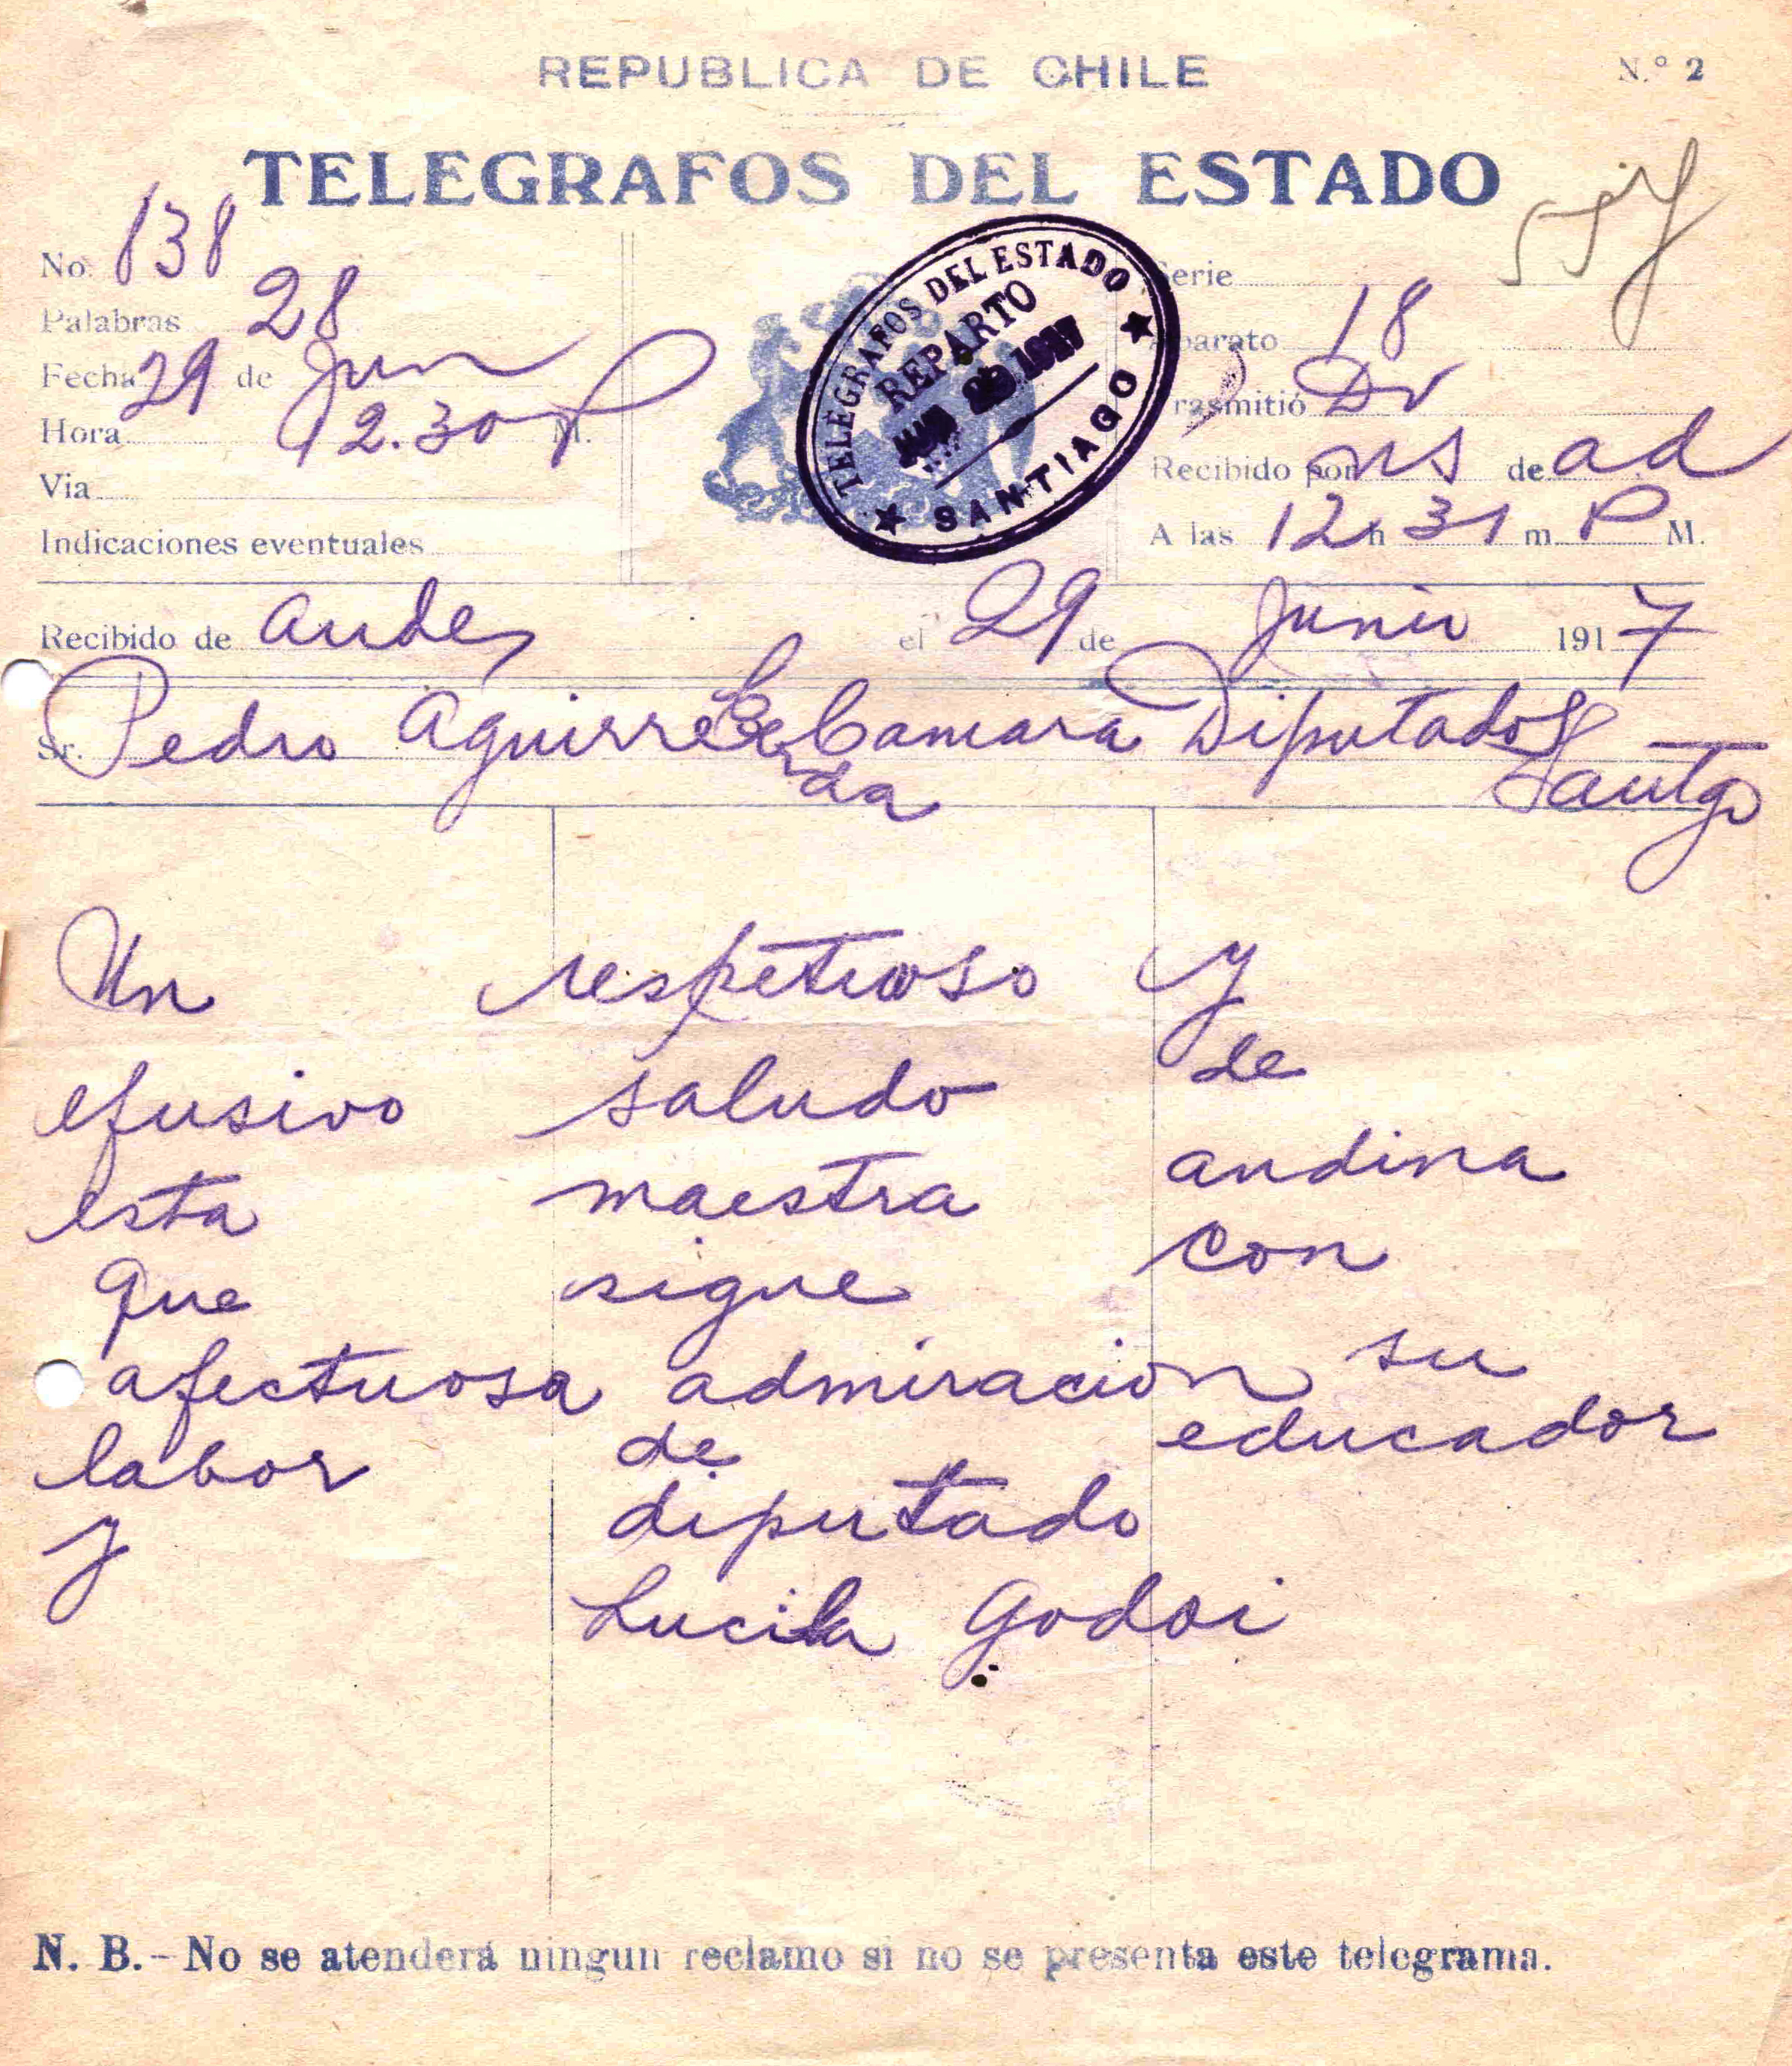 REPUBLICA DE CHILE
N.° 2
TELEGRAFOS DEL ESTADO
No. 138
Palabras 28
Fecha 29 de Jun
Hora 12.30 P M.
Via
Indicaciones eventuales
TELEGRAFOS DEL ESTADO
REPARTO
29 1917
SANTIAGO
Serie
Aparato 18
Trasmitió Dv
Recibido por ns de ad
A las 12 h 31 m. P M.
Recibido de Andes el 29 de Junio 1917
Sr. Pedro Aguirre Cerda Camara Diputados
Santgo
Un respetuoso y
efusivo saludo de
esta maestra andina
que sigue con
afectuosa admiracion su
labor de educador
y diputado
Lucila Godoi
N. B. - No se atenderá ningun reclamo si no se presenta este telegrama.